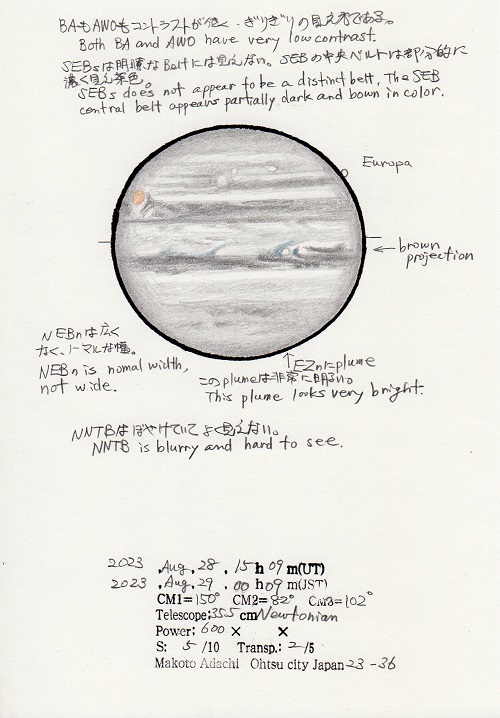 BAもAWOもコントラストが低く、ぎりぎりの見え方である。
Both BA and AWO have very low contrast.
SEBsは明瞭なBeltには見えない。SEBの中央ベルトは部分的に
濃く見え茶色。
SEBs does not appear to be a distinct belt. The SEB
central belt appears partially dark and bown in color.
Europa
← brown
projection
NEBnは広く
なく、ノーマルな幅。
NEBn is nomal width,
not wide.
↑ EZnにplume
このplumeは非常に明るい。
This plume looks very bright.
NNTBはぼやけていてよく見えない。
NNTB is blurry and hard to see.
2023 .Aug. 28 . 15 h 09 m(UT)
2023 .Aug. 29 . 00 h 09 m(JST)
CM1=150° CM2=82° CM3=102°
Telescope;35.5 cm Newtonian
Power; 600 × ×
S: 5 /10 Transp.: 2 /5
Makoto Adachi Ohtsu city Japan 23-36